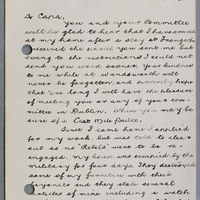 A Cara,
You and your Committee
will be glad to hear that I have arrived
at my home after a stay at Frongoch.
I received the parcel you sent me but
owing to the restrictions I could not
send you word sooner. Your kindness
to me while at Wandsworth will
never be forgotten, and I sincerely hope
that 'ere long I will have the pleasure
of meeting you or any of your com-
mittee in Dublin. When you may be
sure of a Cead Mile Failte.
Since I came home I applied
for my work, but was told to clear
out as no "Rebels" were to be re-
engaged. My house was occupied by the
military for four days. They destroyed
some of my furniture with their
bayonets and they stole several
articles of mine including a watch